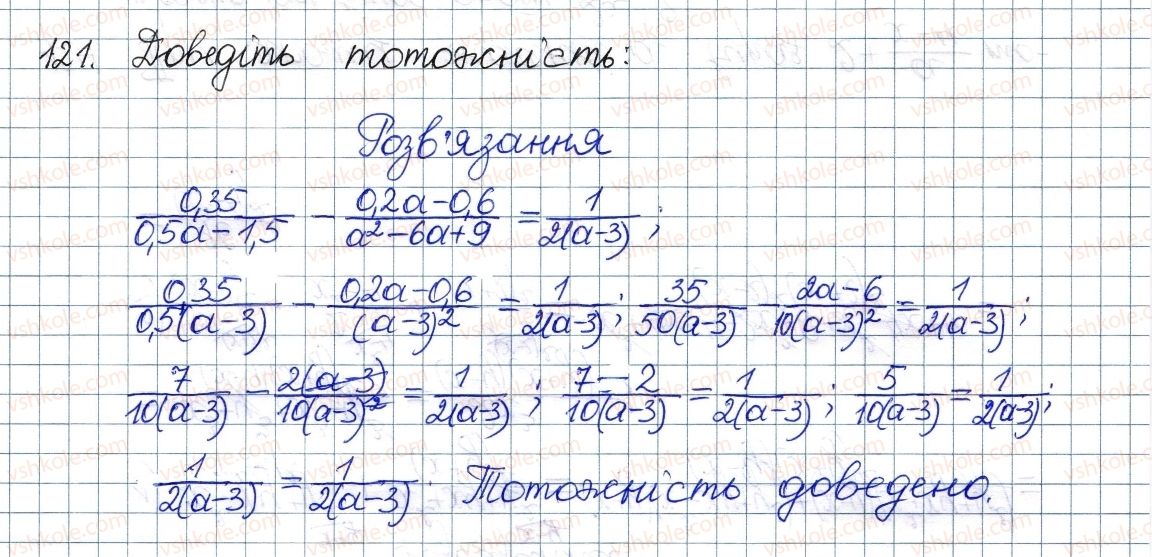 121. Доведіть тотожність:
Розв'язання
0,35/(0,5a-1,5) - (0,2a-0,6)/(a²-6a+9) = 1/(2(a-3)) ;
0,35/(0,5(a-3)) - (0,2a-0,6)/(a-3)² = 1/(2(a-3)) ; 35/(50(a-3)) - (2a-6)/(10(a-3)²) = 1/(2(a-3)) ;
7/(10(a-3)) - 2(a-3)/(10(a-3)²) = 1/(2(a-3)) ; (7-2)/(10(a-3)) = 1/(2(a-3)) ; 5/(10(a-3)) = 1/(2(a-3)) ;
1/(2(a-3)) = 1/(2(a-3)). Тотожність доведено.